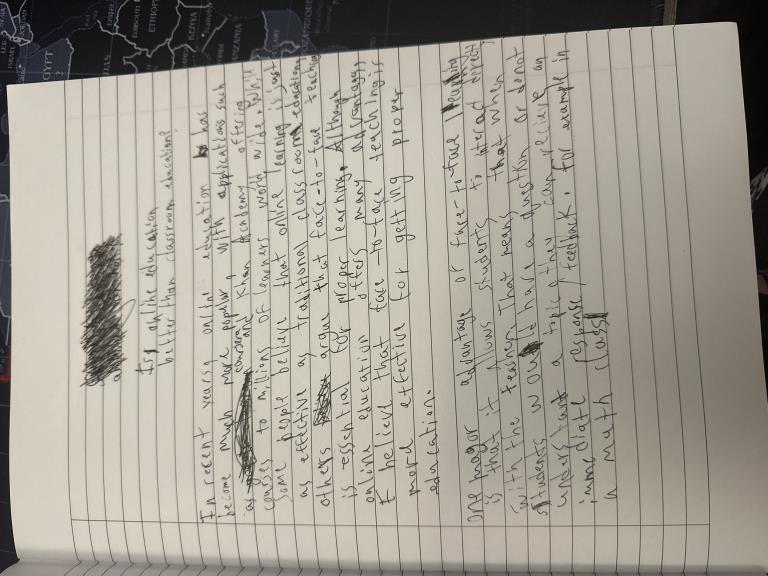 Is online education
better than classroom education?
In recent years, online education has
become much more popular, with applications such
as coursera and Khan Academy offering
courses to millions of learners world wide. While
some people believe that online learning is just
as effective as traditional classroom education,
others argue that face-to-face teaching
is essential for proper learning. Although
online education offers many advantages,
I believe that face-to-face teaching is
more effective for getting proper
education.
One major addantage of face-to-face
is that it allows students to interact directly
with the teacher. That means that when
students would have a question or donot
understant a topic, they can recieve an
immidiate response/feedback. For example in
a math class
EGYPT
ETHIOPIA
KENYA